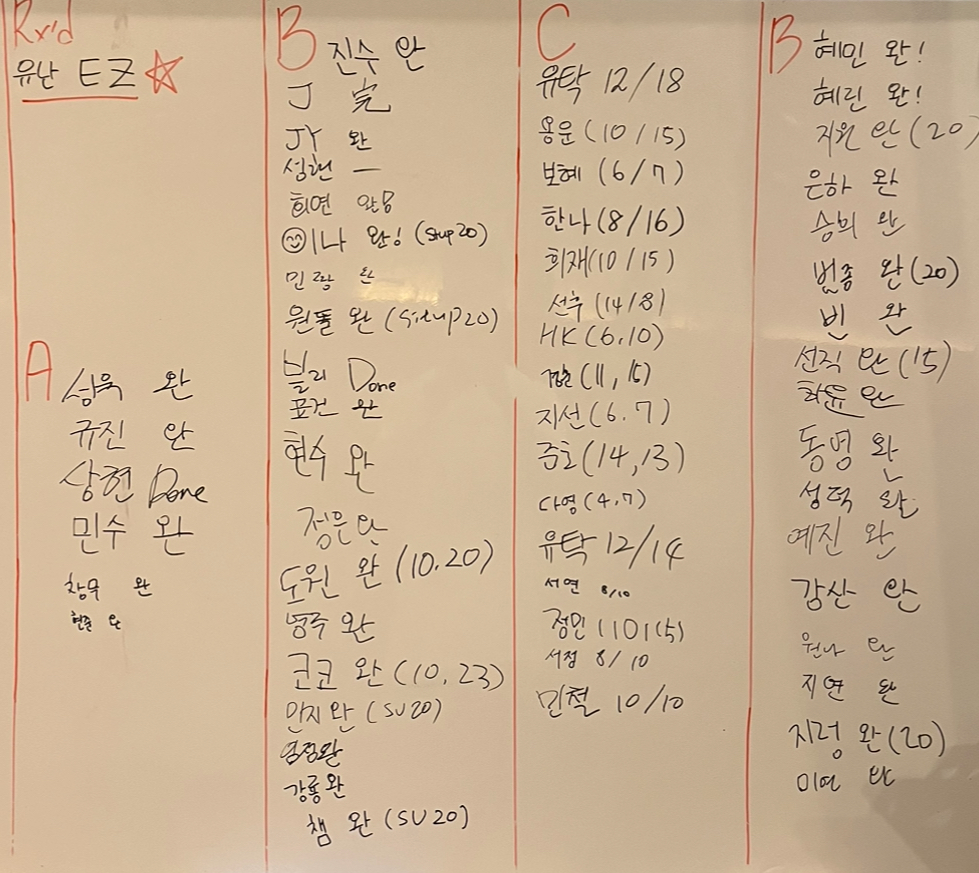 Rx'd
유난 EZ
A
성욱 완
규진 완
상현 Done
민수 완
창우 완
현준 완
B
진수 완
J 完
JY 완
성현 —
희연 완
이나 완! (Situp20)
민랑 완
원돌 완 (Situp20)
블리 Done
표건 완
현수 완
정은 완
도원 완 (10.20)
명주 완
코코 완 (10, 23)
민지 완 (SU20)
완
강룡 완
챔 완 (SU20)
C
유탁 12/18
용운 (10/15)
보혜 (6/7)
한나 (8/16)
희재 (10/15)
선우 (14/8)
HK (6.10)
(11, 15)
지선 (6.7)
준호 (14, 13)
다영 (4.7)
유탁 12/14
서연 8/10
정민 (10/15)
서정 8/10
민철 10/10
B
혜민 완!
혜린 완!
지원 완 (20)
은하 완
승희 완
범종 완 (20)
빈 완
선직 완 (15)
화윤 완
동명 완
성덕 완
예진 완
강산 완
원나 완
지연 완
지령 완 (20)
미연 완